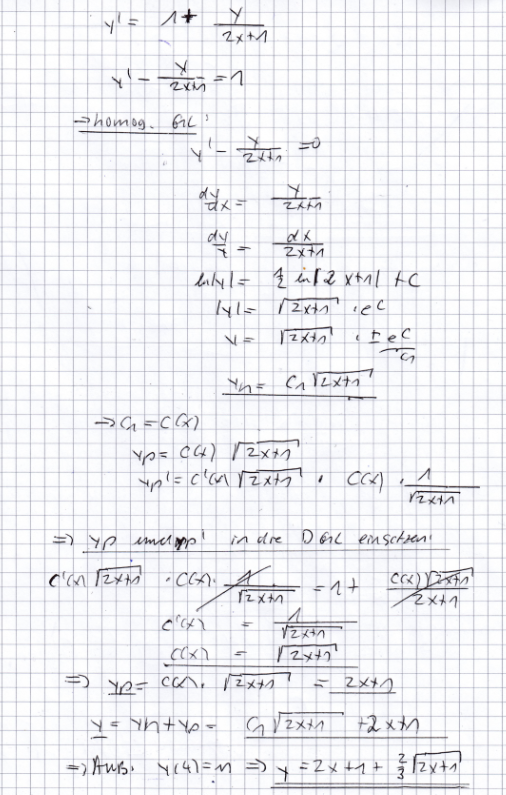 y' = 1 + y/(2x+1)
y' - y/(2x+1) = 1
→ homog. GL:
y' - y/(2x+1) = 0
dy/dx = y/(2x+1)
dy/y = dx/(2x+1)
ln|y| = 1/2 ln|2x+1| + C
|y| = √(2x+1) · e^C
y = √(2x+1) · ± e^C
C₁
yₕ = C₁ √(2x+1)
→ C₁ = C(x)
yp = C(x) √(2x+1)
yp' = C'(x) √(2x+1) · C(x) · 1/√(2x+1)
⇒ yp und yp' in die DGL einsetzen:
C'(x) √(2x+1) · C(x) · 1/√(2x+1) = 1 + C(x)√(2x+1)/(2x+1)
C'(x) = 1/√(2x+1)
C(x) = √(2x+1)
⇒ yp = C(x) · √(2x+1) = 2x+1
y = yh + yp = C₁ √(2x+1) + 2x+1
⇒ AWB. y(4) = 11 ⇒ y = 2x+1 + 2/3 √(2x+1)